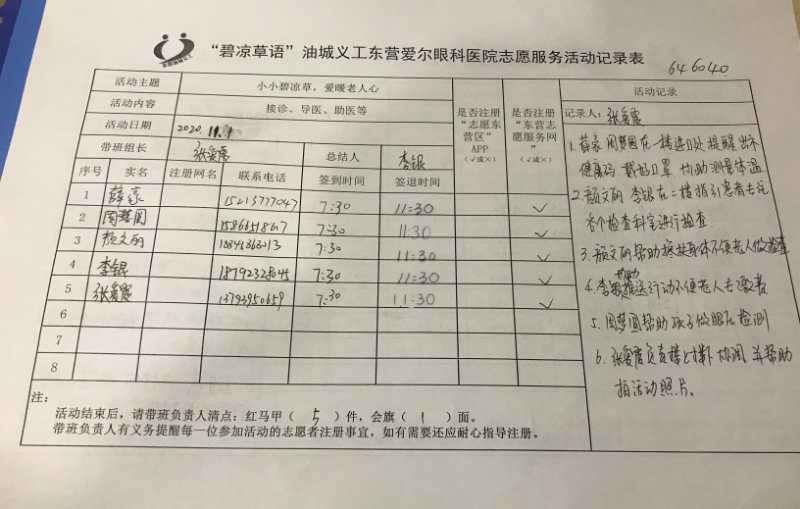 “碧凉草语”油城义工东营爱尔眼科医院志愿服务活动记录表
646040
活动主题 小小碧凉草，爱暖老人心
活动内容 接诊、导医、助医等
活动日期 2020.11.1
带班组长 总结人 李银
是否注册“志愿东营区”APP（√或×）
是否注册“东营志愿服务网”（√或×）
序号 实名 注册网名 联系电话 签到时间 签退时间
1 薛家 15213717047 7:30 11:30
2 周梦圆 7:30 11:30 √
3 颜文丽 7:30 11:30 √
4 李银 7:30 11:30 √
5 13793950659 7:30 11:30 √
6
7
8
注：
活动结束后，请带班负责人清点：红马甲（ 5 ）件，会旗（ 1 ）面。
带班负责人有义务提醒每一位参加活动的志愿者注册事宜，如有需要还应耐心指导注册。
活动记录
记录人：
1. 薛家 周梦圆在一楼进口处提醒出示
健康码 戴好口罩 协助测量体温
2. 颜文丽 李银在二楼指引患者去完
各个检查科室进行检查
3. 颜文丽帮助搀扶身体不便老人做检查
4. 李银 行动不便老人去
5. 周梦圆帮助孩子做眼石检测
6. 负责楼上楼下协调 并帮助
拍活动照片。